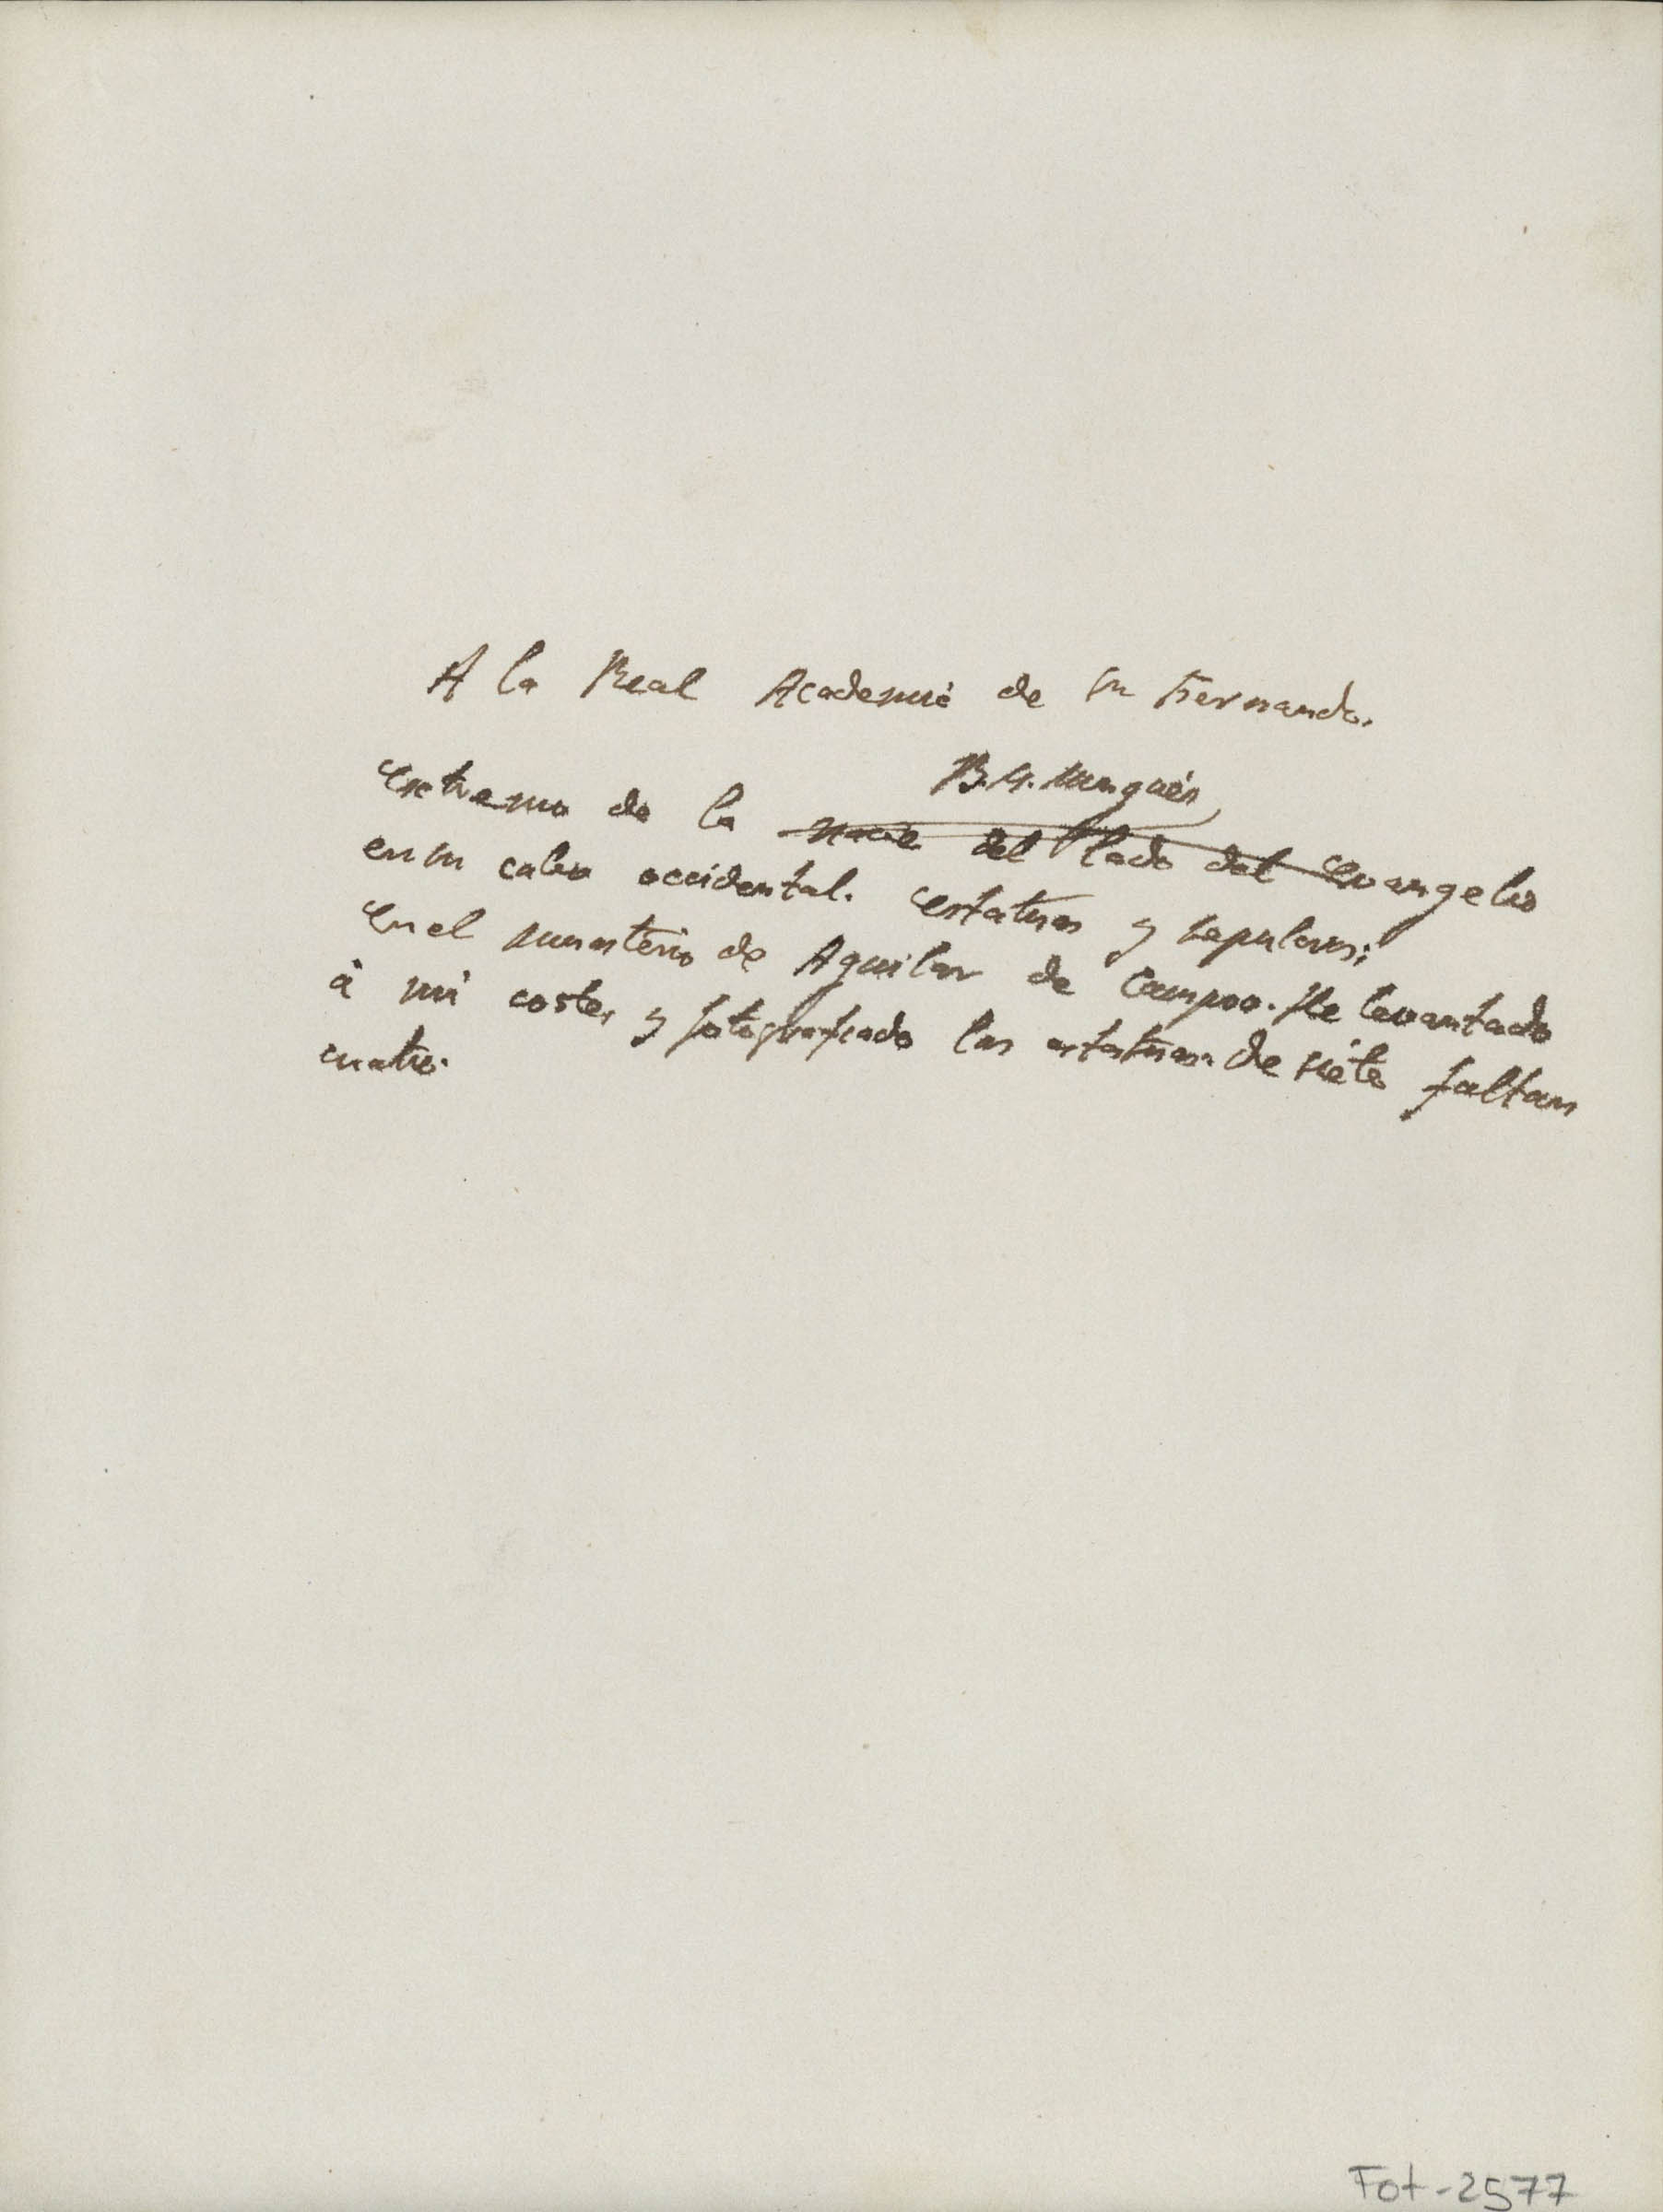 A la Real Academia de Sn Fernando.
B. G.
Extremo de la nave del lado del Evangelio
en su cabo occidental. Estatuas y sepulcros;
En el monasterio de Aguilar de Campoo. He levantado
à mi coste, y fotografiado las estatuas. De siete faltan
cuatro.
Fot-2577